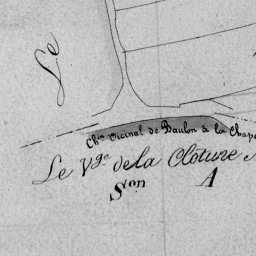 Le
Chin Vicinal de Baulon à la Chape
Le Vge de la Clôture
Son A